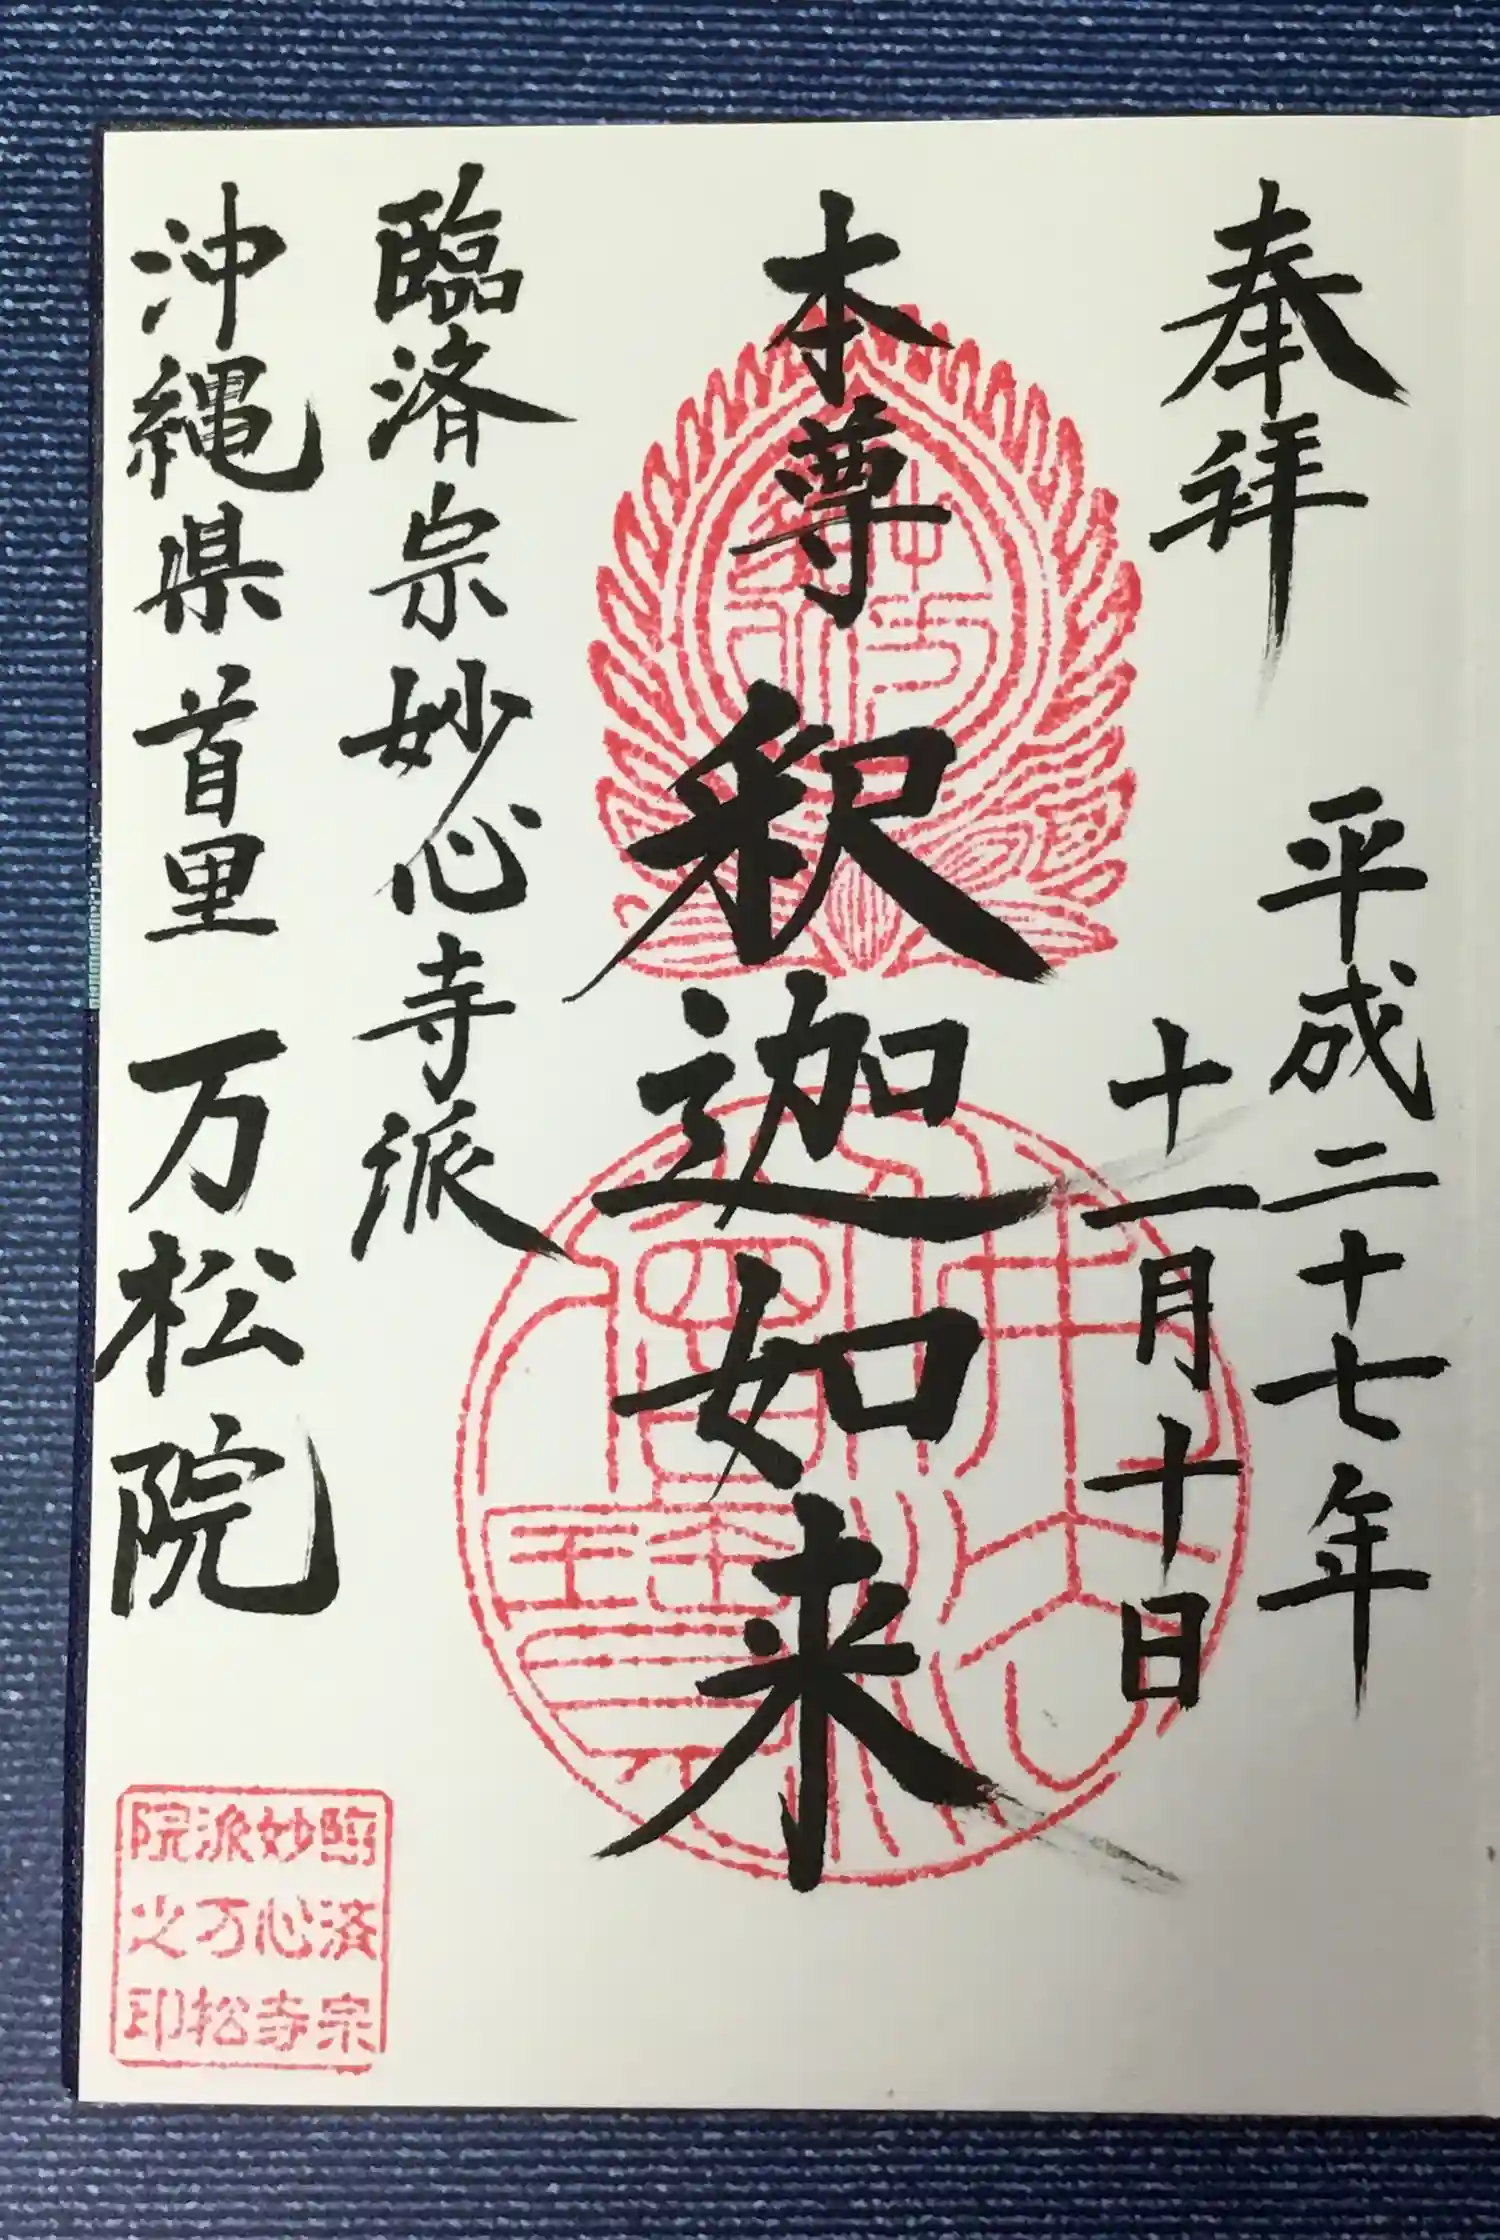 奉拝
平成二十七年
十一月十日
本尊 釈迦如来
臨済宗妙心寺派
沖縄県首里 万松院
臨済宗
妙心寺
派万松
院之印